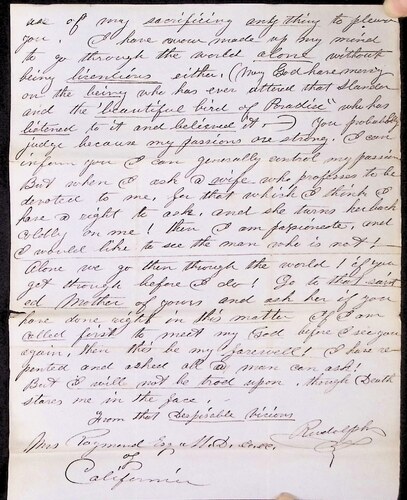 use of my sacrificing any thing to please
you. I have now made up my mind
to go through the world alone without
being licentious either. (May God have mercy
on the being who has ever uttered that slander
and the "beautiful bird of Paradise" who has
listened to it and believed it.—) You probably
judge because my passions are strong. I can
inform you I can generally control my passion
But when I ask a wife who professes to be
devoted to me, for that which I think I
have a right to ask, and she turns her back
coldly on me! then I am passionate, and
I would like to see the man who is not!—
Alone we go then through the world! if you
get through before I do! Go to that saint
ed Mother of yours and ask her if you
have done right in this matter If I am
called first to meet my God before I see you
again, then this be my farewell! I have re
pented and asked all a man can ask!
But I will not be trod upon, though Death
stares me in the face.
From that Despicable Vicious
Rudolph
Mrs Raymond
of
California